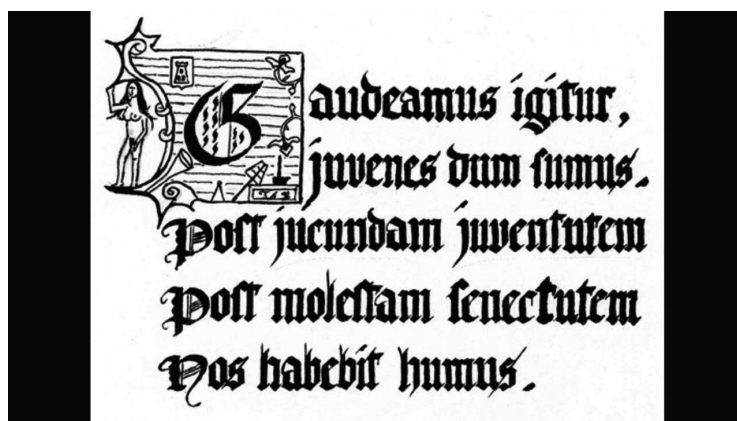 Gaudeamus igitur,
juvenes dum ſumus.
Poſt jucundam juventutem
Poſt moleſtam ſenectutem
Nos habebit humus.